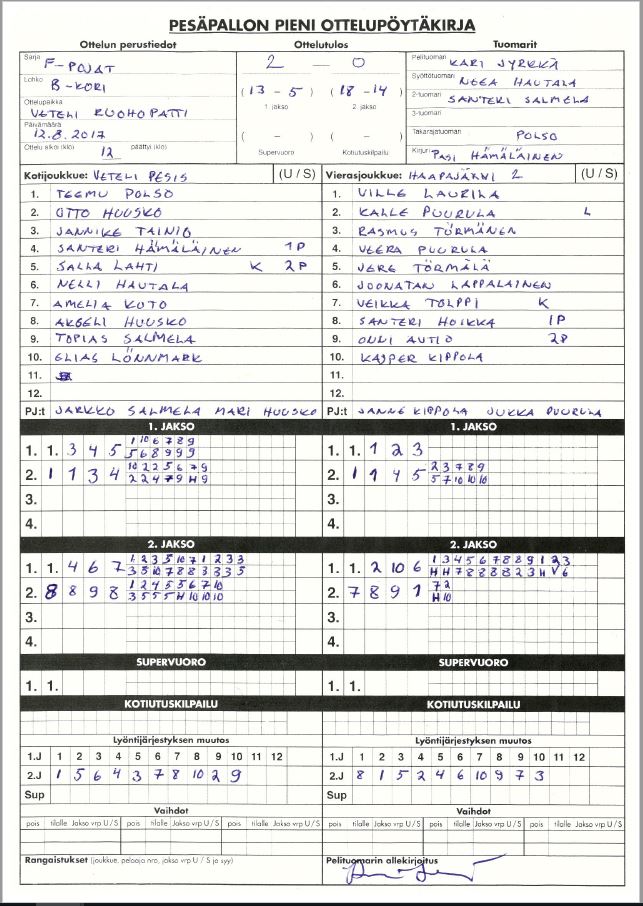 PESÄPALLON PIENI OTTELUPÖYTÄKIRJA
Ottelun perustiedot Ottelutulos Tuomarit
Sarja F-POJAT 2 — 0 Pelituomari KARI JYRKKÄ
Lohko B-KORI Syöttötuomari NEEA HAUTALA
Ottelupaikka VETELI RUOHOPATTI (13 - 5) (18 - 14) 2-tuomari SANTERI SALMELA
1. jakso 2. jakso 3-tuomari
Päivämäärä 12.8.2017 ( - ) ( - ) Takarajatuomari POLSO
Ottelu alkoi (klo) 12 päättyi (klo) Supervuoro Kotiutuskilpailu Kirjuri PASI HÄMÄLÄINEN
Kotijoukkue: VETELI PESIS (U / S) Vierasjoukkue: HAAPAJÄRVI 2 (U / S)
1. TEEMU POLSO 1. VILLE LAURILA
2. OTTO HUUSKO 2. KALLE PUURULA L
3. JANNIKE TAINIO 3. RASMUS TÖRMÄNEN
4. SANTERI HÄMÄLÄINEN 1P 4. VEERA PUURULA
5. SALLA LAHTI K 2P 5. JERE TÖRMÄLÄ
6. NELLI HAUTALA 6. JOONATAN LAPPALAINEN
7. AMELIA KOTO 7. VEIKKA TOLPPI K
8. AKSELI HUUSKO 8. SANTERI HOIKKA 1P
9. TOPIAS SALMELA 9. ONNI AUTIO 2P
10. ELIAS LÖNNMARK 10. KASPER KIPPOLA
11. 11.
12. 12.
PJ:t JARKKO SALMELA MARI HUUSKO PJ:t JANNE KIPPOLA JUKKA PUURULA
1. JAKSO 1. JAKSO
1. 1. 3 4 5 1 10 6 7 8 9 1. 1. 1 2 3
5 6 8 9 9 9
2. 1 1 3 4 10 2 2 5 6 7 9 2. 1 1 4 5 2 3 7 8 9
2 2 4 7 9 H 9 5 7 10 10 10
3. 3.
4. 4.
2. JAKSO 2. JAKSO
1. 1. 4 6 7 1 2 3 5 10 7 1 2 3 3 1. 1. 2 10 6 1 3 4 5 6 7 8 8 9 1 2 3
3 5 10 7 8 8 3 3 3 5 H H 7 8 8 8 8 2 3 H V 6
2. 8 8 9 8 1 2 4 5 5 6 7 10 2. 7 8 9 1 7 2
3 5 5 5 H 10 10 10 H 10
3. 3.
4. 4.
SUPERVUORO SUPERVUORO
1. 1. 1. 1.
KOTIUTUSKILPAILU KOTIUTUSKILPAILU
Lyöntijärjestyksen muutos Lyöntijärjestyksen muutos
1.J 1 2 3 4 5 6 7 8 9 10 11 12 1.J 1 2 3 4 5 6 7 8 9 10 11 12
2.J 1 5 6 4 3 7 8 10 2 9 2.J 8 1 5 2 4 6 10 9 7 3
Sup Sup
Vaihdot Vaihdot
pois tilalle Jakso vrp U / S pois tilalle Jakso vrp U / S pois tilalle Jakso vrp U / S pois tilalle Jakso vrp U / S
Rangaistukset (joukkue, pelaaja nro, jakso vrp U / S ja syy) Pelituomarin allekirjoitus